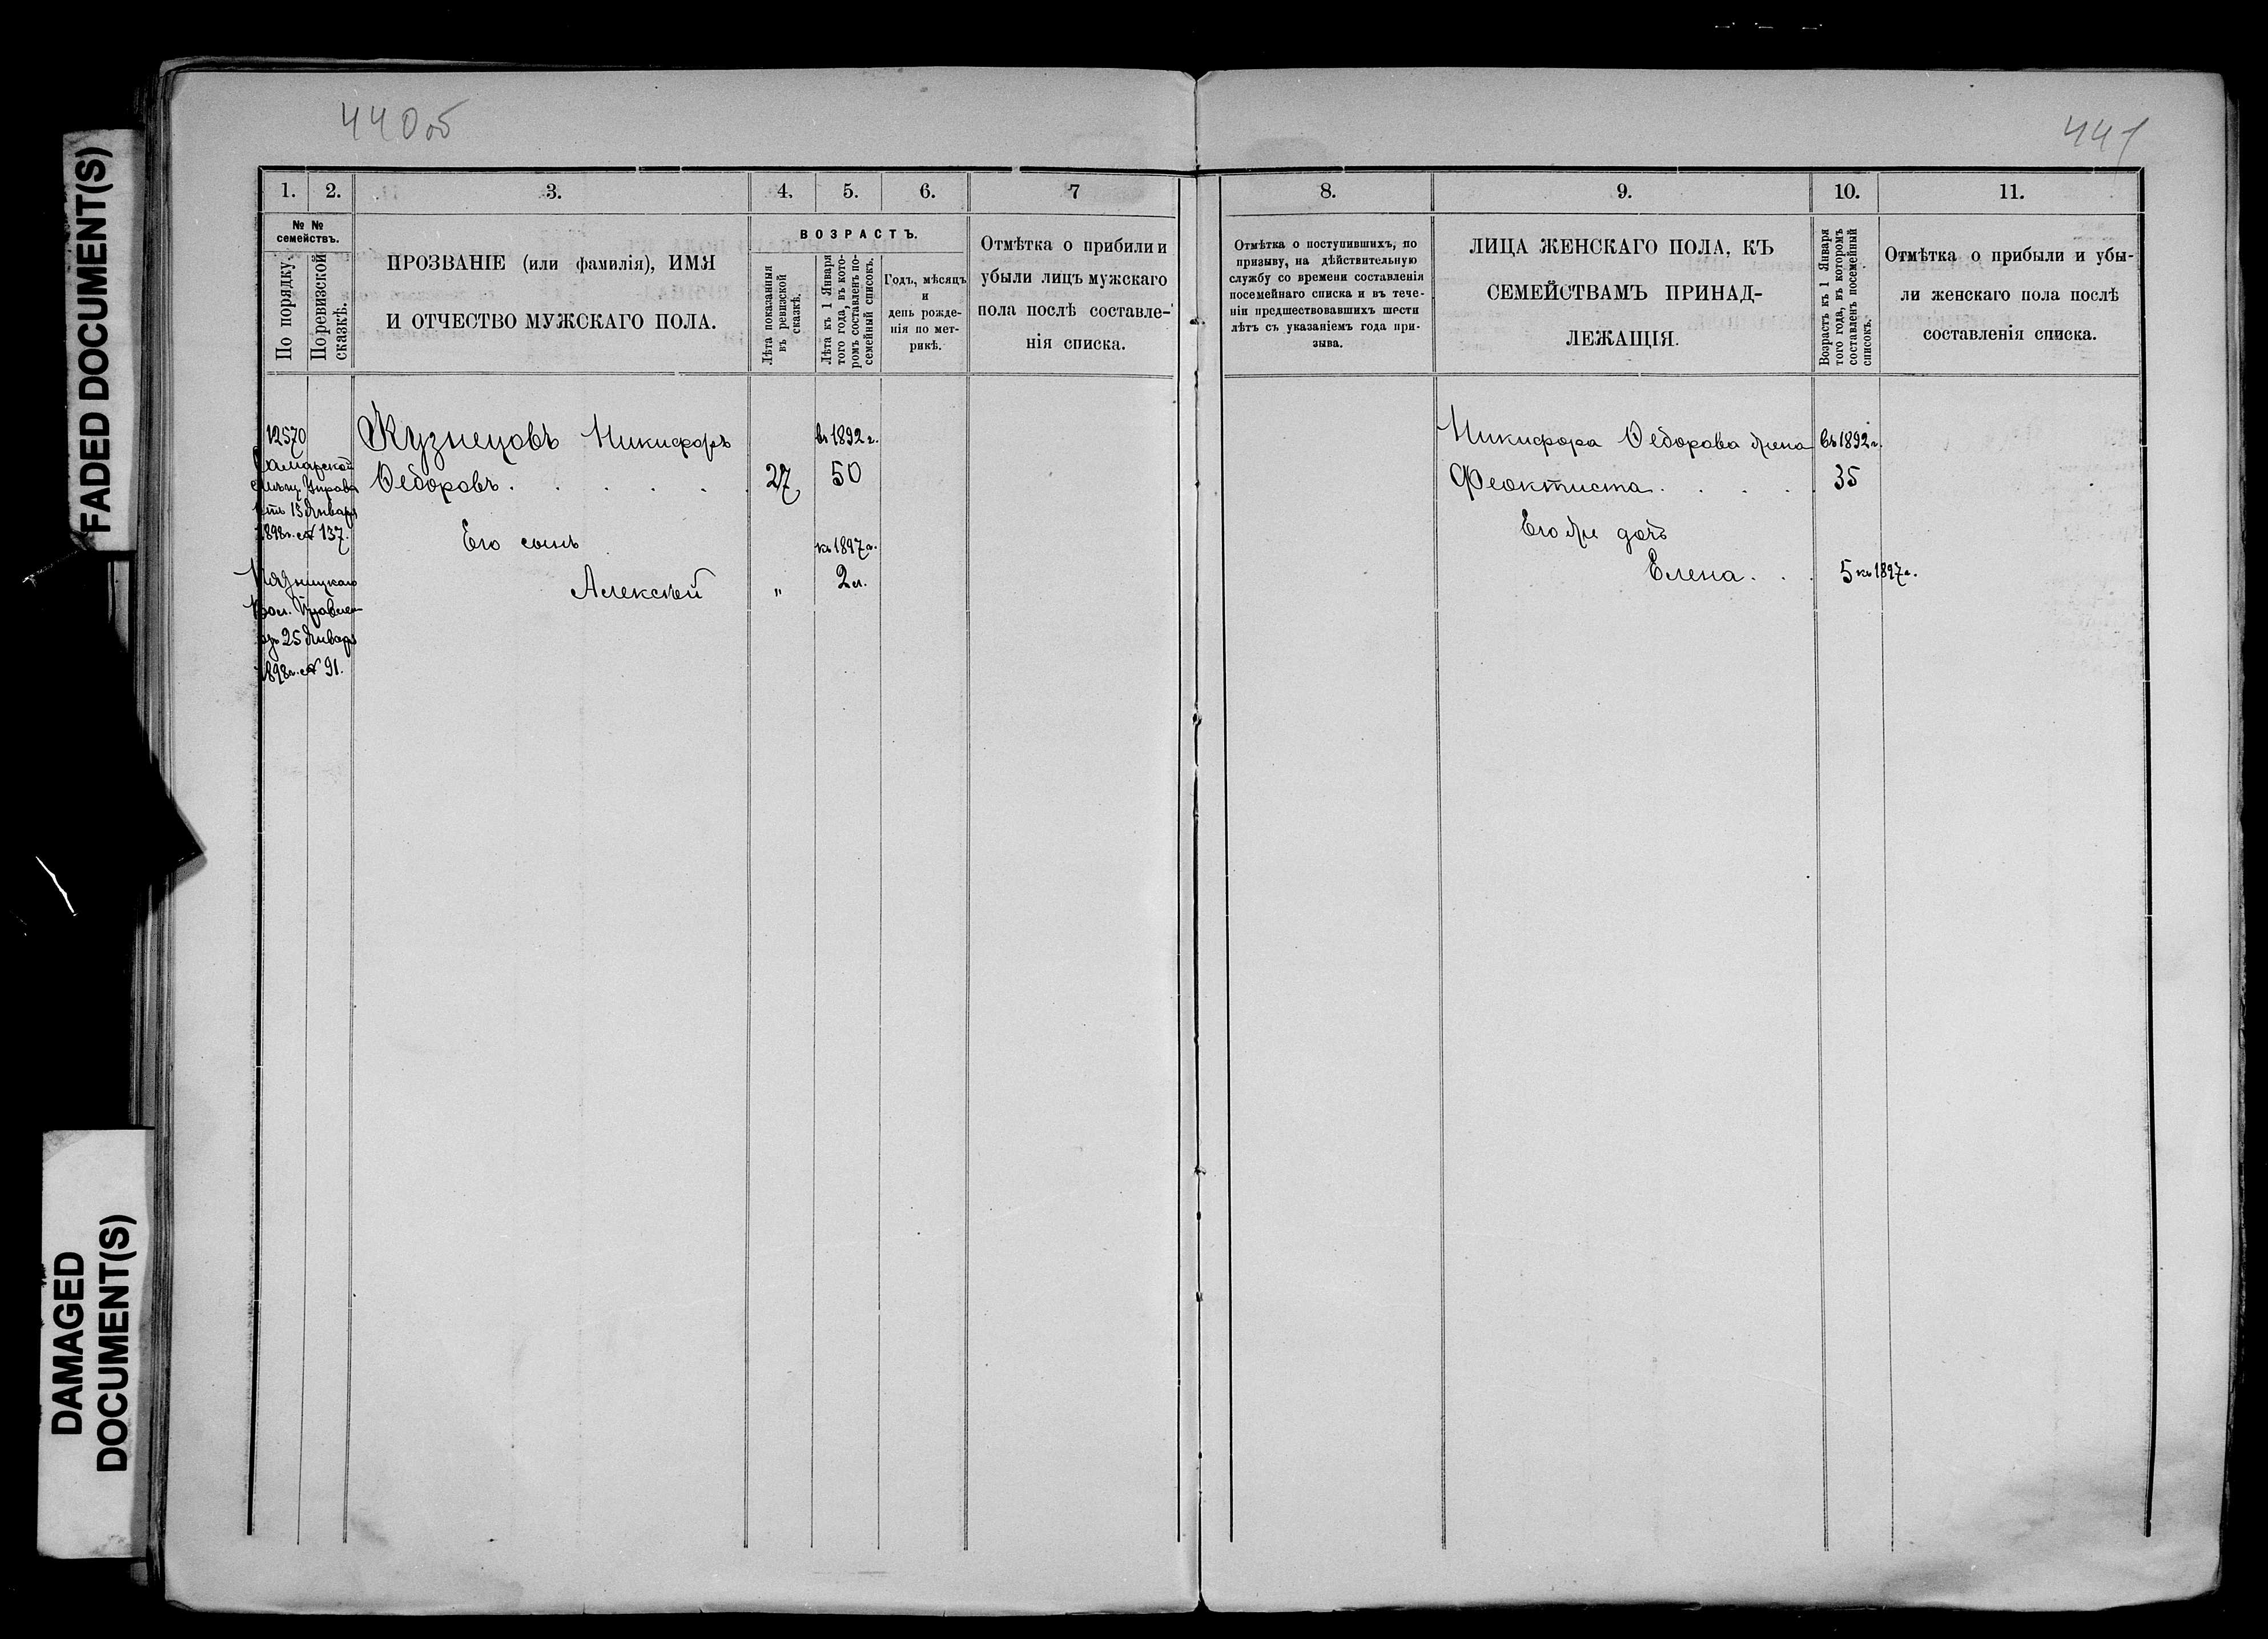 FADED DOCUMENT(S)
DAMAGED
DOCUMENT(S)
440об
1.
2.
3.
4.
5.
6.
7
№ №
семействъ.
По порядку.
По ревизской
сказкѣ.
ПРОЗВАНІЕ (или фамилія), ИМЯ
И ОТЧЕСТВО МУЖСКАГО ПОЛА.
ВОЗРАСТЪ.
Лѣта показанныя
въ ревизской
сказкѣ.
Лѣта къ 1 Января
того года, въ кото-
ромъ составленъ по-
семейный списокъ.
Годъ, мѣсяцъ
и
день рожде-
нія по мет-
рикѣ.
Отмѣтка о прибыли и
убыли лицъ мужскаго
пола послѣ составле-
нія списка.
12570
Самарской
Мѣщ. Управа
отъ 13 Января
1898г. № 137.
Вол. Правлен
25 Января
1898г. № 91.
Кузнецовъ Никифоръ
въ 1892 г.
Ѳедоровъ . . . . . .
27
50
Его сынъ
къ 1897 г.
Алексѣй
"
2 л.
441
8.
9.
10.
11.
Отмѣтка о поступившихъ, по
призыву, на дѣйствительную
службу со времени составленія
посемейнаго списка и въ тече-
ніи предшествовавшихъ шести
лѣтъ съ указаніемъ года при-
зыва.
ЛИЦА ЖЕНСКАГО ПОЛА, КЪ
СЕМЕЙСТВАМЪ ПРИНАД-
ЛЕЖАЩІЯ.
Возрастъ къ 1 Января
того года, въ которомъ
составленъ посемейный
списокъ.
Отмѣтка о прибыли и убы-
ли женскаго пола послѣ
составленія списка.
Никифора Ѳедорова жена
въ 1892 г.
Феоктиста . . . . .
35
Его же дочь
Елена . . .
5 къ 1897 г.